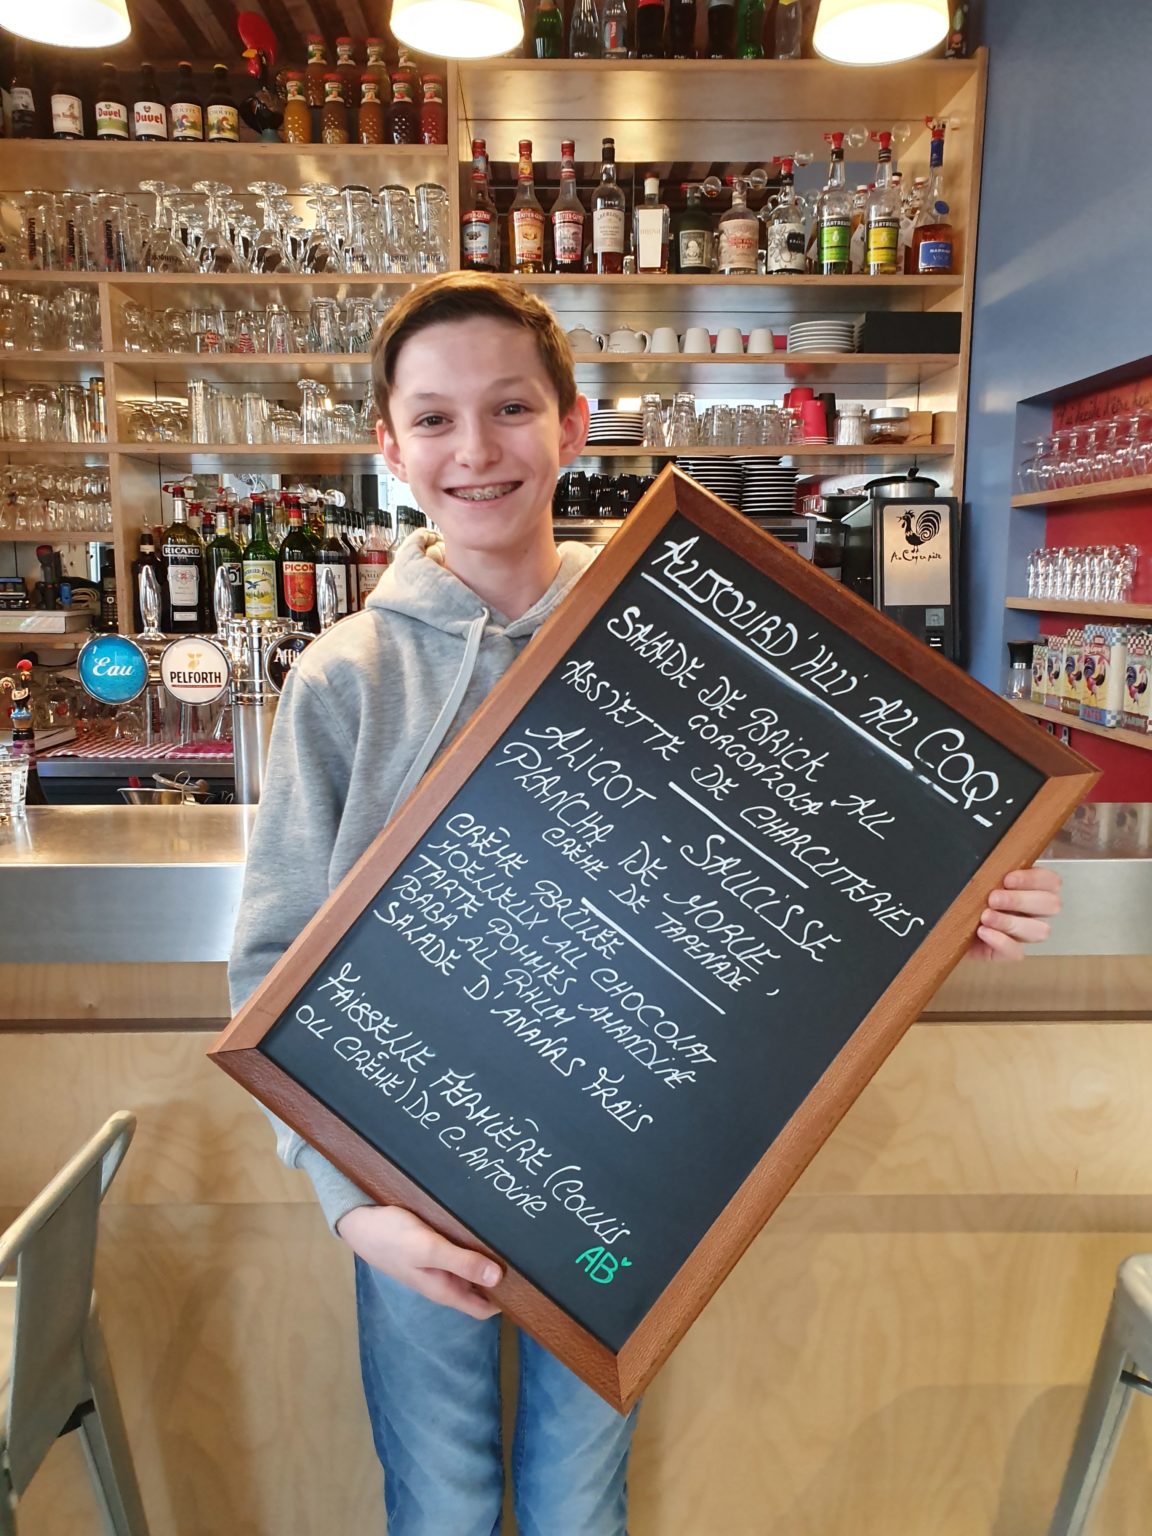 Duvel
Duvel
CHOUFFE
CHARTREUSE
CHARTREUSE
RICARD
PICON
Eau
PELFORTH
Affli
AUJOURD'HUI AU COQ:
SALADE DE BRICK AU
GORGONZOLA
ASSIETTE DE CHARCUTERIES
ALIGOT - SAUCISSE
PLANCHA DE MORUE,
CRÈME DE TAPENADE
CRÈME BRÛLÉE
MOELLEUX AU CHOCOLAT
TARTE POMMES AMANDINE
BABA AU RHUM
SALADE D'ANANAS FRAIS
FAISSELLE FERMIÈRE (COULIS
OU CRÈME) De C. ANTOINE
AB